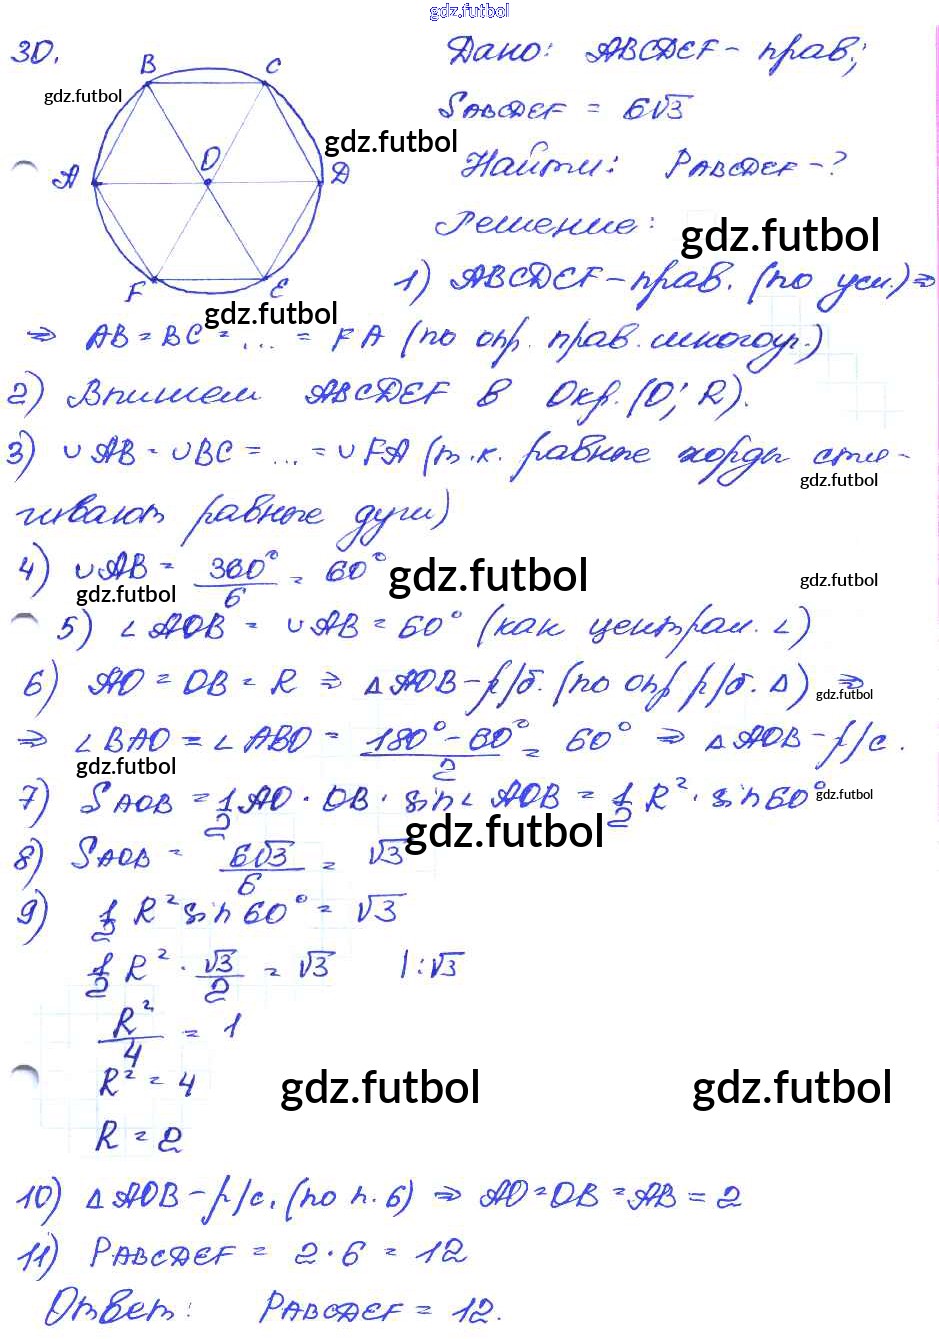 gdz.futbol
30.
Дано: ABCDEF - прав;
B C
gdz.futbol
SABCDEF = 6√3
gdz.futbol
A O D
Найти: PABCDEF - ?
Решение:
gdz.futbol
F E
1) ABCDEF - прав. (по усл.) ⇒
gdz.futbol
⇒ AB = BC = ... = FA (по опр. прав. многоуг.)
2) Впишем ABCDEF в Окр. (O; R).
3) ∪AB = ∪BC = ... = ∪FA (т.к. равные хорды стя-
gdz.futbol
гивают равные дуги)
4) ∪AB = 360°/6 = 60°
gdz.futbol
gdz.futbol
gdz.futbol
5) ∠AOB = ∪AB = 60° (как централ. ∠)
6) AO = OB = R ⇒ △AOB - р/б. (по опр р/б. △) ⇒
gdz.futbol
⇒ ∠BAO = ∠ABO = (180° - 60°)/2 = 60° ⇒ △AOB - р/с.
gdz.futbol
7) SAOB = 1/2 AO · OB · sin∠AOB = 1/2 R² · sin60°
gdz.futbol
gdz.futbol
8) SAOB = 6√3/6 = √3
9) 1/2 R² sin60° = √3
1/2 R² · √3/2 = √3 | : √3
R²/4 = 1
R² = 4
gdz.futbol gdz.futbol
R = 2
10) △AOB - р/с. (по п. 6) ⇒ AO = OB = AB = 2
11) PABCDEF = 2 · 6 = 12
Ответ: PABCDEF = 12.